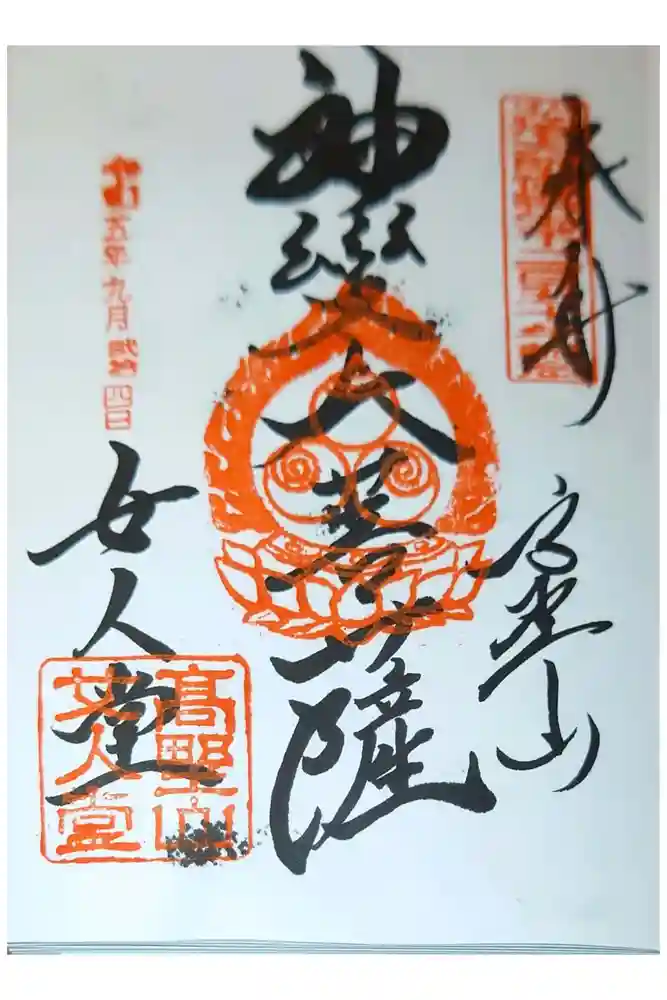 奉拝
高野山
神變大菩薩
五年九月
四日
女人堂
高野山
女人堂